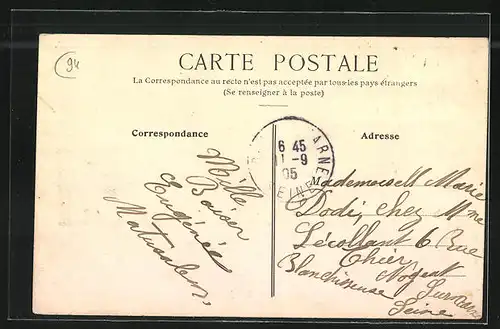 94
CARTE POSTALE
La Correspondance au recto n'est pas acceptée par tous les pays étrangers
(Se renseigner à la poste)
Correspondance
Adresse
6 45
11 -9
05
ARNE
SEINE
Mille
Baiser
Eugénie
Mademoiselle Marie
Dodi, chez Mme
Lécollant 6 Rue
Thier, Nogent
Blanchisseuse
Seine